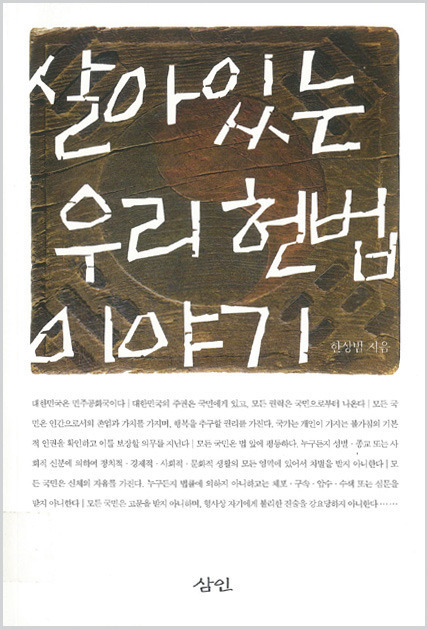 살아있는
우리 헌법
이야기
한상범 지음
대한민국은 민주공화국이다 | 대한민국의 주권은 국민에게 있고, 모든 권력은 국민으로부터 나온다 | 모든 국
민은 인간으로서의 존엄과 가치를 가지며, 행복을 추구할 권리를 가진다. 국가는 개인이 가지는 불가침의 기본
적 인권을 확인하고 이를 보장할 의무를 지닌다 | 모든 국민은 법 앞에 평등하다. 누구든지 성별 · 종교 또는 사
회적 신분에 의하여 정치적 · 경제적 · 사회적 · 문화적 생활의 모든 영역에 있어서 차별을 받지 아니한다 | 모
든 국민은 신체의 자유를 가진다. 누구든지 법률에 의하지 아니하고는 체포 · 구속 · 압수 · 수색 또는 심문을
받지 아니한다 | 모든 국민은 고문을 받지 아니하며, 형사상 자기에게 불리한 진술을 강요당하지 아니한다 ……
삼인